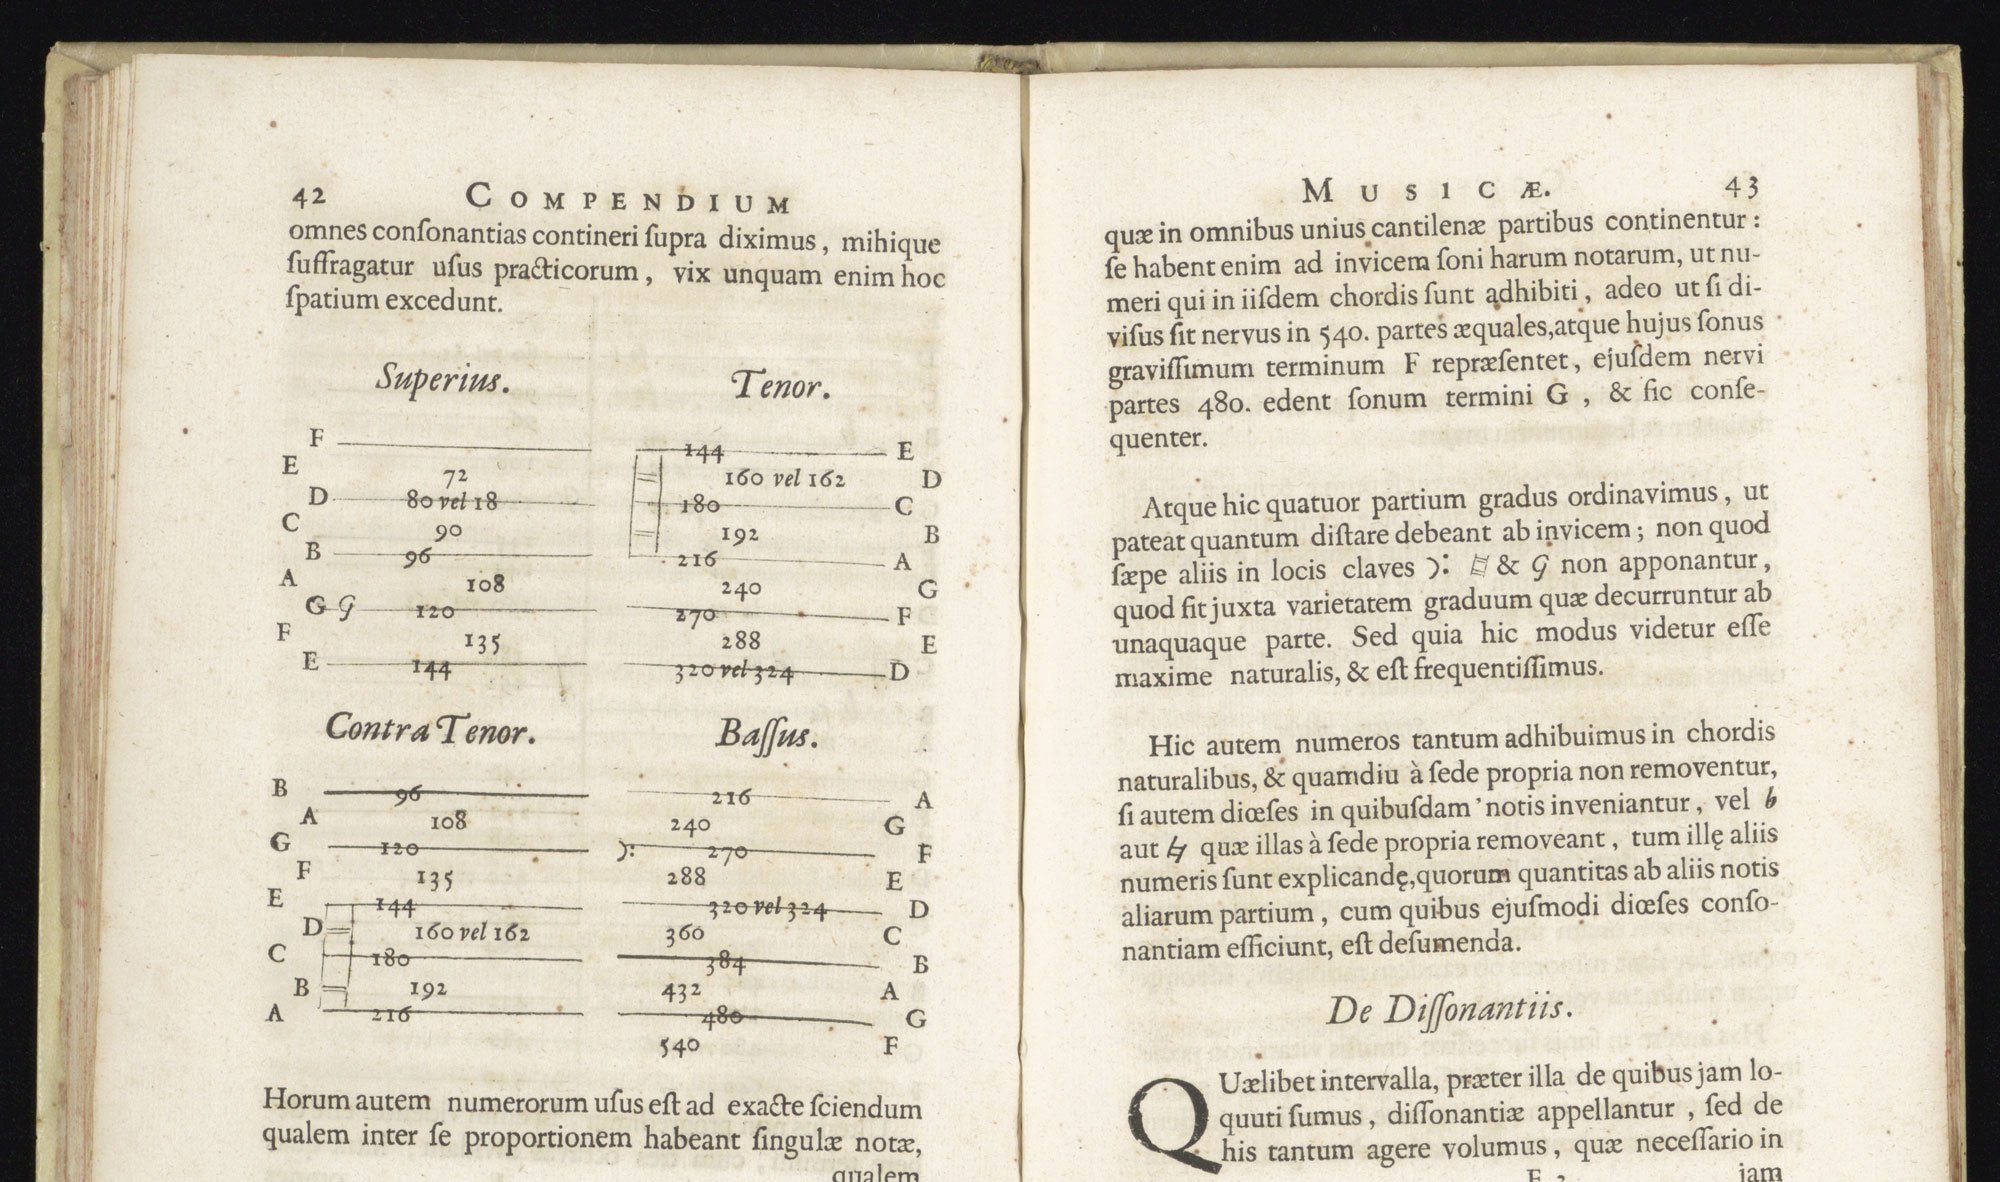 42 COMPENDIUM
omnes conſonantias contineri ſupra diximus, mihique
ſuffragatur uſus practicorum, vix unquam enim hoc
ſpatium excedunt.
Superius.
F
E 72
D 80 vel 18
C 90
B 96
A 108
G G 120
F 135
E 144
Tenor.
144 E
160 vel 162 D
180 C
192 B
216 A
240 G
270 F
288 E
320 vel 324 D
Contra Tenor.
B 96
A 108
G 120
F 135
E 144
D 160 vel 162
C 180
B 192
A 216
Baſſus.
216 A
240 G
270 F
288 E
320 vel 324 D
360 C
384 B
432 A
480 G
540 F
Horum autem numerorum uſus eſt ad exacte ſciendum
qualem inter ſe proportionem habeant ſingulæ notæ,
qualem
MUSICÆ. 43
quæ in omnibus unius cantilenæ partibus continentur:
ſe habent enim ad invicem ſoni harum notarum, ut nu-
meri qui in iiſdem chordis ſunt adhibiti, adeo ut ſi di-
viſus ſit nervus in 540. partes æquales, atque hujus ſonus
graviſſimum terminum F repræſentet, ejuſdem nervi
partes 480. edent ſonum termini G, & ſic conſe-
quenter.
Atque hic quatuor partium gradus ordinavimus, ut
pateat quantum diſtare debeant ab invicem; non quod
ſæpe aliis in locis claves & G non apponantur,
quod fit juxta varietatem graduum quæ decurruntur ab
unaquaque parte. Sed quia hic modus videtur eſſe
maxime naturalis, & eſt frequentiſſimus.
Hic autem numeros tantum adhibuimus in chordis
naturalibus, & quamdiu à ſede propria non removentur,
ſi autem diœſes in quibuſdam notis inveniantur, vel b
aut ♮ quæ illas à ſede propria removeant, tum illę aliis
numeris ſunt explicandę, quorum quantitas ab aliis notis
aliarum partium, cum quibus ejuſmodi diœſes conſo-
nantiam efficiunt, eſt deſumenda.
De Diſſonantiis.
QUælibet intervalla, præter illa de quibus jam lo-
quuti ſumus, diſſonantiæ appellantur, ſed de
his tantum agere volumus, quæ neceſſario in
jam